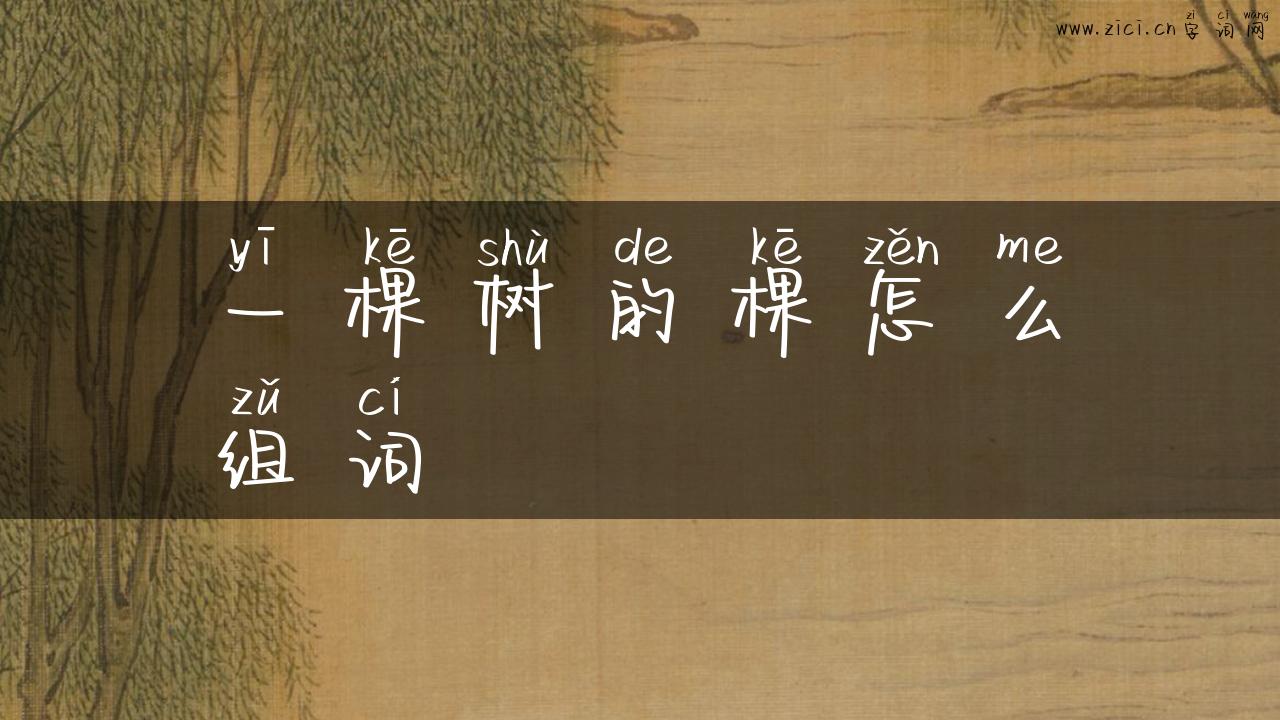 zì cí wǎng
www.zici.cn 字词网
yī kē shù de kē zěn me
一棵树的棵怎么
zǔ cí
组词